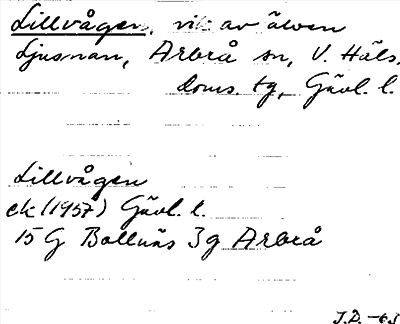 Lillvågen, vik av älven
Ljusnan, Arbrå sn, V. Häls.
doms. tg, Gävl. l.
Lillvågen
ek (1957) Gävl. l.
15 G Bollnäs 3g Arbrå
J.D. -63